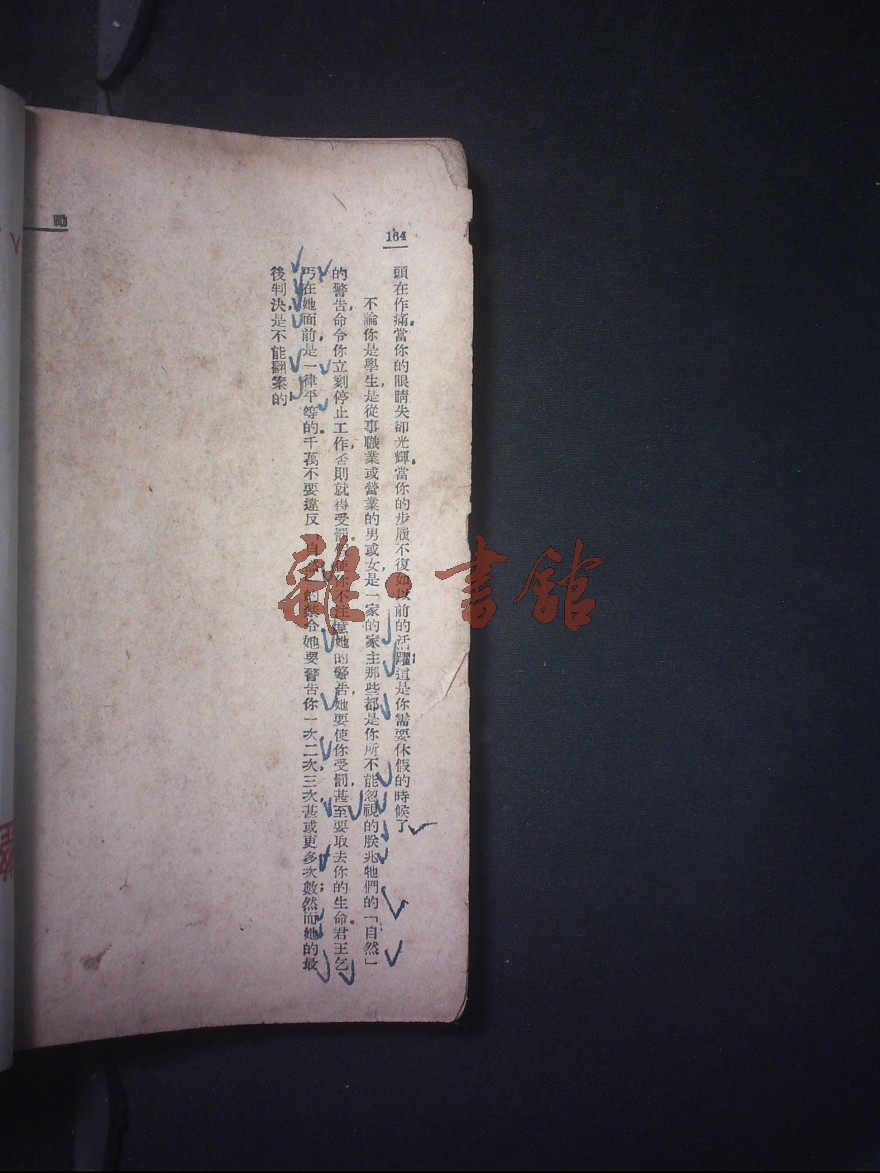 164
頭在作痛。當你的眼睛失卻光輝。當你的步履不復如以前的活躍；這是你需要休假的時候了
不論你是學生，是從事職業或營業的男或女，是一家的家主那些都是你所不能忽視的朕兆牠們的「自然」
的警告，命令你立刻停止工作，否則就得受罰。你不注意她的警告，她要使你受罰，甚至要取去你的生命。君王乞
丐在她面前，是一律平等的。千萬不要違反「自然」的禁令她要警告你一次，二次，三次，甚或更多次數；然而她的最
後判決，是不能翻案的，
雜·書館